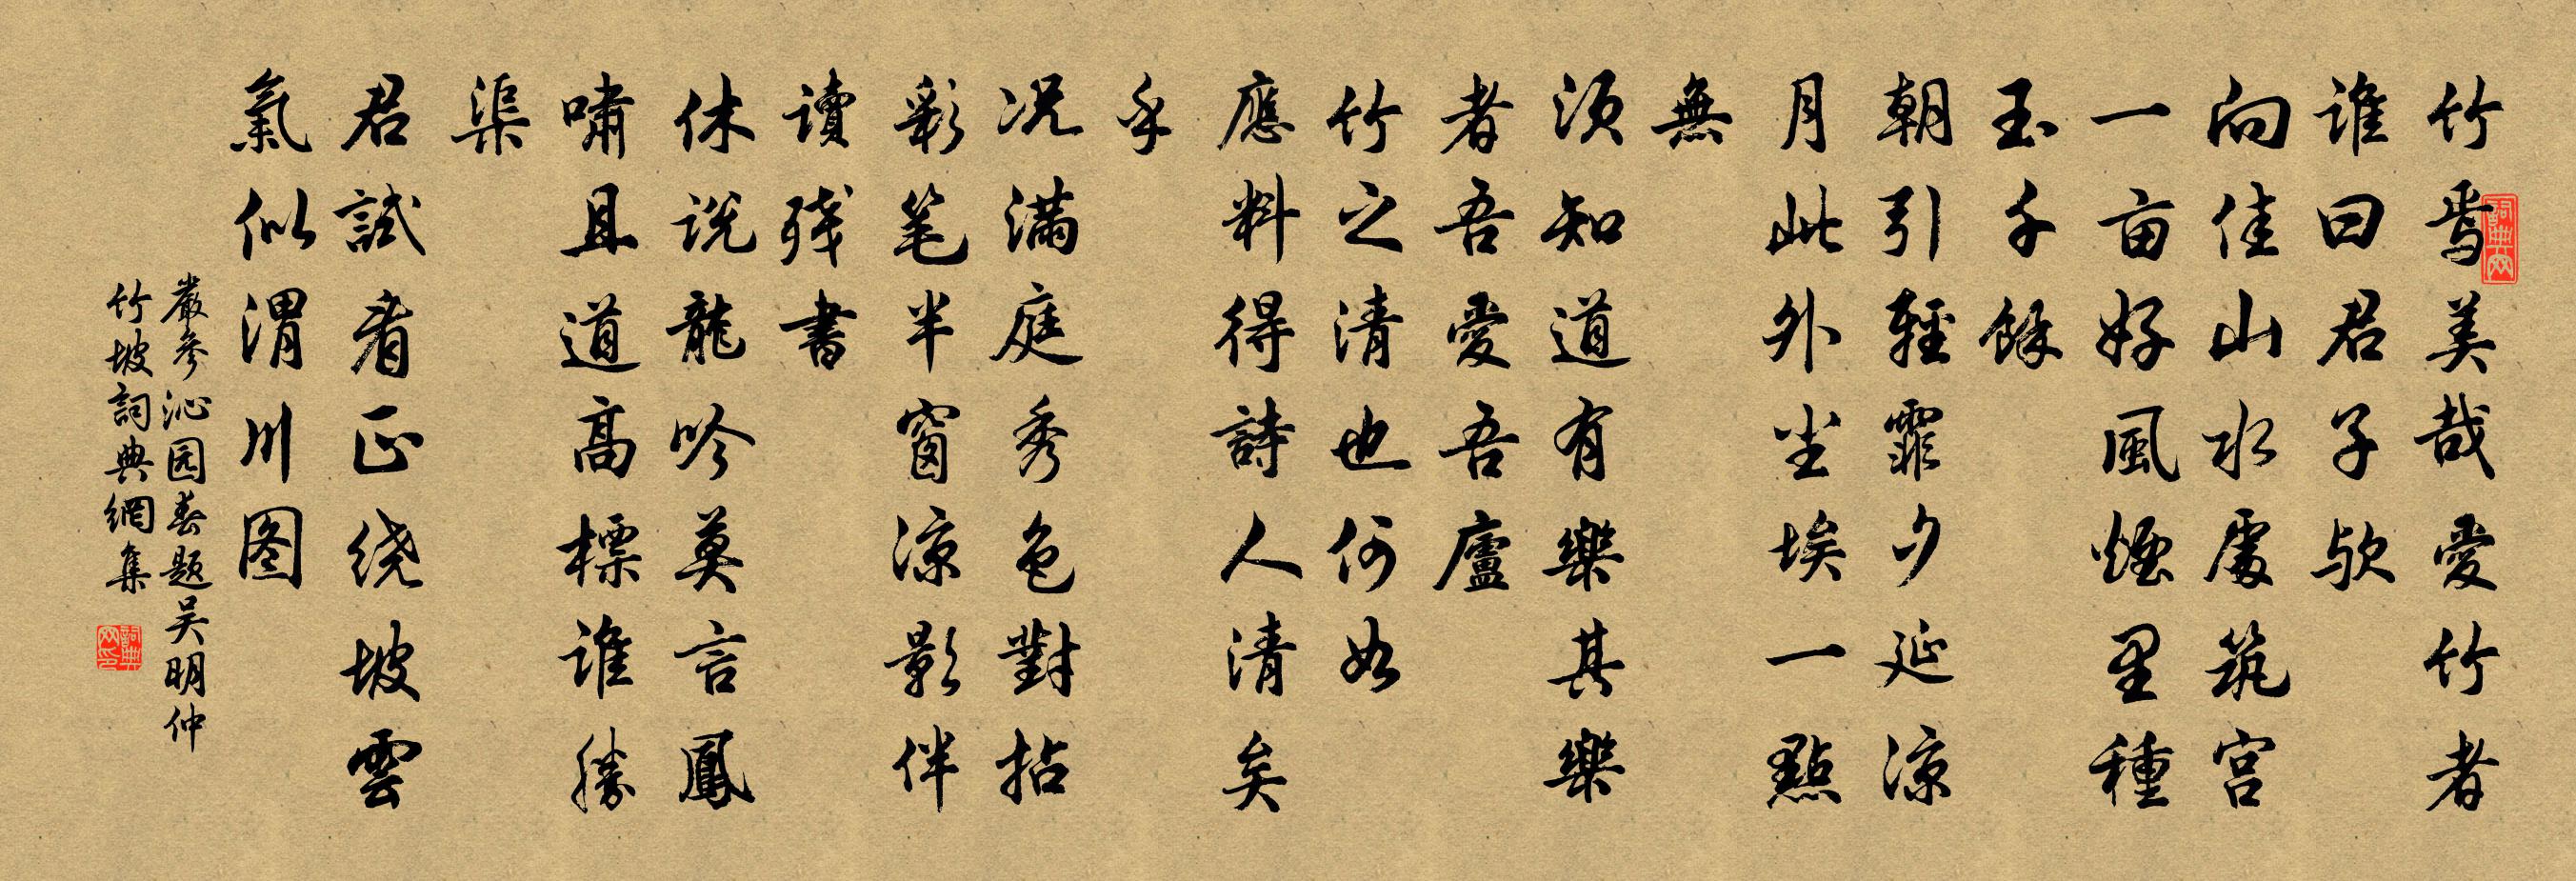 竹焉美哉愛竹者
谁曰君子欤
向佳山水處筑宫
一亩好風煙里種
玉千餘
朝引輕霏夕延凉
月此外尘埃一點
無
須知道有樂其樂
者吾愛吾廬
竹之清也何如
應料得詩人清矣
乎
况满庭秀色對拈
彩笔半窗凉影伴
读残書
休说龍吟莫言鳳
啸且道高標谁勝
渠
君試看正绕坡雲
氣似渭川图
嚴參沁园春题吴明仲
竹坡詞典網集
詞典网
詞典网印